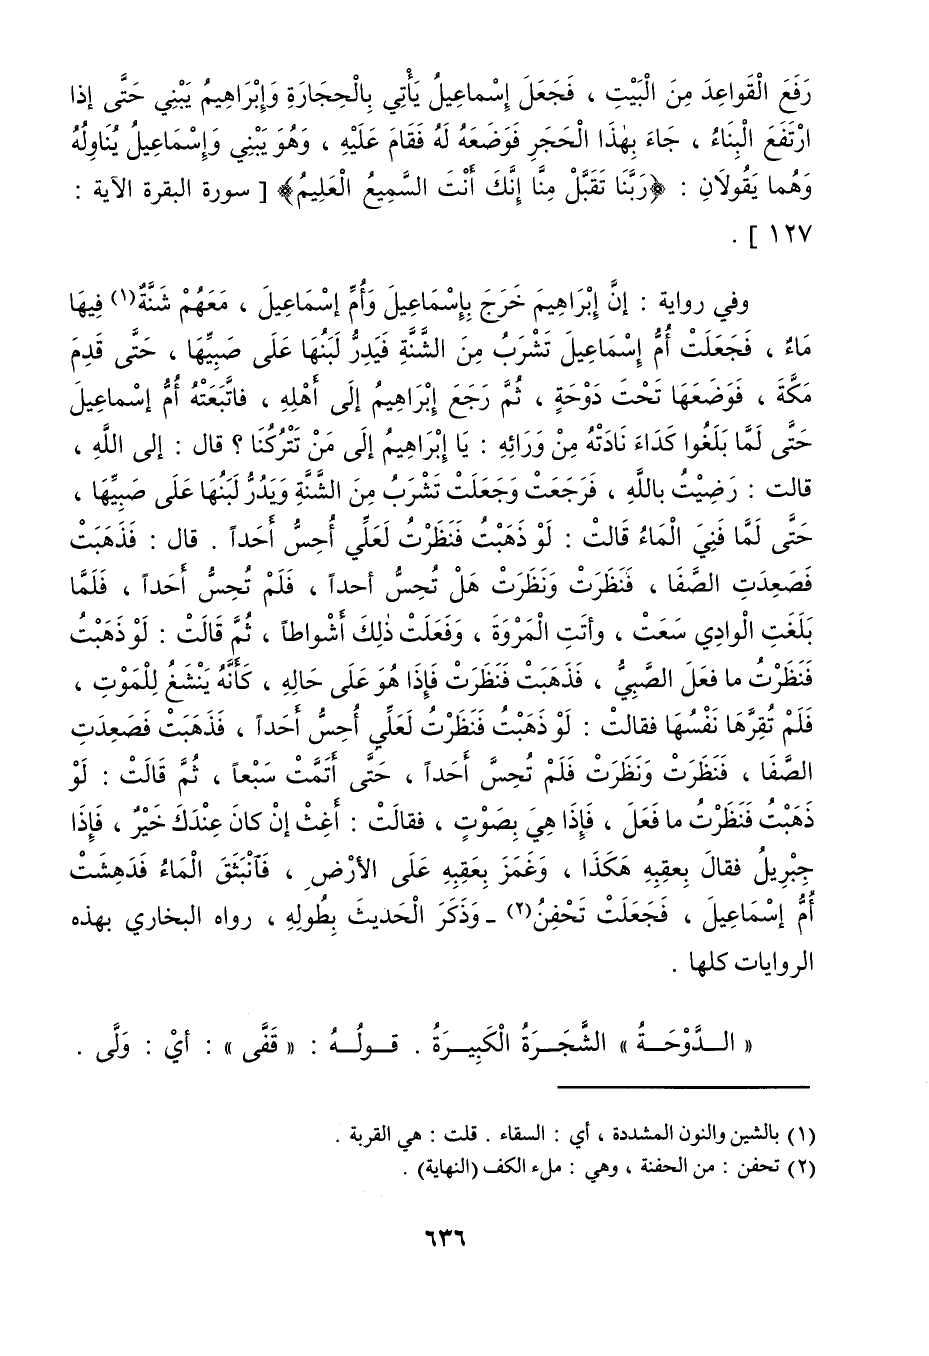 رَفَعَ الْقَواعِدَ مِنَ الْبَيْتِ ، فَجَعَلَ إِسْماعِيلُ يَأْتِي بِالْحِجَارَةِ وَإِبْرَاهِيمُ يَبْنِي حَتَّى إذا
ارْتَفَعَ الْبِنَاءُ ، جَاءَ بِهٰذَا الْحَجَرِ فَوَضَعَهُ لَهُ فَقَامَ عَلَيْهِ ، وَهُوَ يَبْنِي وَإِسْمَاعِيلُ يُنَاوِلُهُ
وَهُما يَقُولاَنِ : ﴿رَبَّنَا تَقَبَّلْ مِنَّا إِنَّكَ أَنْتَ السَّمِيعُ الْعَلِيمُ﴾ [ سورة البقرة الآية :
١٢٧ ] .
وفي رواية : إنَّ إِبْرَاهِيمَ خَرَجَ بِإِسْمَاعِيلَ وَأُمِّ إسْمَاعِيلَ ، مَعَهُمْ شَنَّةٌ(١) فِيهَا
مَاءٌ ، فَجَعَلَتْ أُمُّ إِسْمَاعِيلَ تَشْرَبُ مِنَ الشَّنَّةِ فَيَدِرُّ لَبَنُهَا عَلَى صَبِيِّهَا ، حَتَّى قَدِمَ
مَكَّةَ ، فَوَضَعَهَا تَحْتَ دَوْحَةٍ ، ثُمَّ رَجَعَ إِبْرَاهِيمُ إلَى أَهْلِهِ ، فاتَّبَعَتْهُ أُمُّ إسْماعِيلَ
حَتَّى لَمَّا بَلَغُوا كَدَاءَ نَادَتْهُ مِنْ وَرَائِهِ : يَا إِبْرَاهِيمُ إلَى مَنْ تَتْرُكُنَا ؟ قال : إلى اللَّهِ ،
قالت : رَضِيْتُ باللَّهِ ، فَرَجَعَتْ وَجَعَلَتْ تَشْرَبُ مِنَ الشَّنَّةِ وَيَدُرُّ لَبَنُهَا عَلَى صَبِيِّهَا ،
حَتَّى لَمَّا فَنِيَ الْمَاءُ قَالَتْ : لَوْ ذَهَبْتُ فَنَظَرْتُ لَعَلِّي أُحِسُّ أَحَداً . قال : فَذَهَبَتْ
فَصَعِدَتِ الصَّفَا ، فَنَظَرَتْ وَنَظَرَتْ هَلْ تُحِسُّ أحداً ، فَلَمْ تُحِسُّ أَحَداً ، فَلَمَّا
بَلَغَتِ الْوادِي سَعَتْ ، وأتَتِ الْمَرْوَةَ ، وَفَعَلَتْ ذٰلِكَ أَشْواطاً ، ثُمَّ قَالَتْ : لَوْ ذَهَبْتُ
فَنَظَرْتُ ما فعَلَ الصَّبِيُّ ، فَذَهَبَتْ فَنَظَرَتْ فَإِذَا هُوَ عَلَى حَالِهِ ، كَأَنَّهُ يَنْشَغُ لِلْمَوْتِ ،
فَلَمْ تُقِرَّهَا نَفْسُهَا فقالتْ : لَوْ ذَهَبْتُ فَنَظَرْتُ لَعَلِّي أُحِسُّ أَحَداً ، فَذَهَبَتْ فَصَعِدَتِ
الصَّفَا ، فَنَظَرَتْ وَنَظَرَتْ فَلَمْ تُحِسَّ أَحَداً ، حَتَّى أَتَمَّتْ سَبْعاً ، ثُمَّ قَالَتْ : لَوْ
ذَهَبْتُ فَنَظَرْتُ ما فَعَلَ ، فَإِذَا هِيَ بِصَوْتٍ ، فقالَتْ : أَغِثْ إنْ كانَ عِنْدَكَ خَيْرٌ ، فَإِذَا
جِبْرِيلُ فقالَ بِعقِبِهِ هَكَذَا ، وَغَمَزَ بِعَقِبِهِ عَلَى الأرْضِ ، فَآنْبَثَقَ الْمَاءُ فَدَهِشَتْ
أُمُّ إسْمَاعِيلَ ، فَجَعَلَتْ تَحْفِنُ(٢) ـ وَذَكَرَ الْحَديثَ بِطُولِهِ ، رواه البخاري بهذه
الروايات كلها .
« الــدَّوْحَــةُ » الشَّجَــرَةُ الْكَبِيــرَةُ . قــولُــهُ : « قَفَّى » : أيْ : وَلَّى .
(١) بالشين والنون المشددة ، أي : السقاء . قلت : هي القربة .
(٢) تحفن : من الحفنة ، وهي : ملء الكف (النهاية) .
٦٣٦